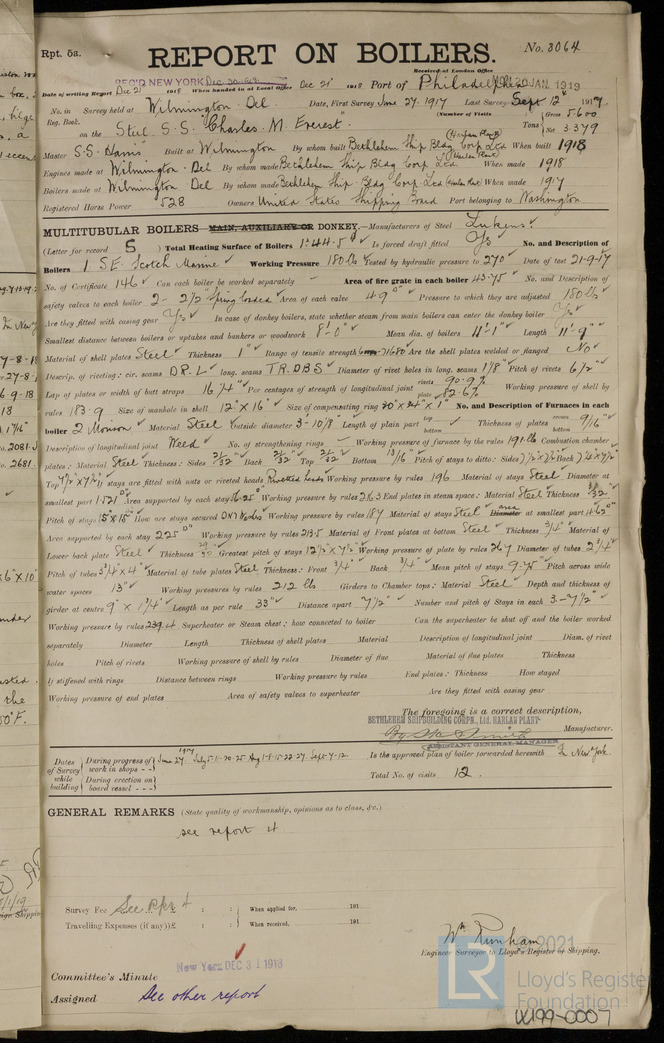 Rpt. 5a.
REPORT ON BOILERS.
No. 3064
Received at London Office
REC'D NEW YORK Dec 30 1918
MON. 20 JAN. 1919
Date of writing Report Dec 21 1918 When handed in at Local Office Dec 21 1918 Port of Philadelphia
No. in Survey held at Wilmington Del. Date, First Survey June 27. 1917 Last Survey Sept 12th 1917
Reg. Book. (Number of Visits
on the Steel S.S. "Charles M. Everest" Tons { Gross 5600 Net 3379
Master S.S. Built at Wilmington By whom built Bethlehem Ship Bldg Corp Ltd (Harlan Plant) When built 1918
Engines made at Wilmington. Del By whom made Bethlehem Ship Bldg Corp Ltd (Harlan Plant) When made 1918
Boilers made at Wilmington Del By whom made Bethlehem Ship Bldg Corp Ltd (Harlan Plant) When made 1917
Registered Horse Power 528 Owners United States Shipping Board Port belonging to Washington
MULTITUBULAR BOILERS MAIN, AUXILIARY OR DONKEY.—Manufacturers of Steel Lukens.
(Letter for record S ) Total Heating Surface of Boilers 1244.5 Is forced draft fitted Yes No. and Description of
Boilers 1 S.E. Scotch Marine Working Pressure 180 lbs Tested by hydraulic pressure to 270 Date of test 21-9-17
No. of Certificate 146 Can each boiler be worked separately – Area of fire grate in each boiler 43.75 No. and Description of
safety valves to each boiler 2 - 2½" Spring loaded Area of each valve 4.9□" Pressure to which they are adjusted 180 lbs
Are they fitted with easing gear Yes In case of donkey boilers, state whether steam from main boilers can enter the donkey boiler Yes
Smallest distance between boilers or uptakes and bunkers or woodwork 8'-0" Mean dia. of boilers 11'-1" Length 11'-9"
Material of shell plates Steel Thickness 1" Range of tensile strength 71680 Are the shell plates welded or flanged No
Descrip. of riveting: cir. seams D.R.L long. seams T.R.D.B.S Diameter of rivet holes in long. seams 1⅛" Pitch of rivets 6½"
Lap of plates or width of butt straps 16¼" Per centages of strength of longitudinal joint rivets 90.9% plate 82.6% Working pressure of shell by
rules 183.9 Size of manhole in shell 12" x 16" Size of compensating ring 20" x 24" x 1" No. and Description of Furnaces in each
boiler 2 Morison Material Steel Outside diameter 3-10⅛" Length of plain part top bottom Thickness of plates crown bottom 9/16"
Description of longitudinal joint Weld No. of strengthening rings – Working pressure of furnace by the rules 191 lbs Combustion chamber
plates: Material Steel Thickness: Sides 21/32" Back 21/32" Top 21/32" Bottom 13/16" Pitch of stays to ditto: Sides 7½ x 7½ Back
Top 7½ x 7½ If stays are fitted with nuts or riveted heads Riveted heads Working pressure by rules 196 Material of stays Steel Diameter at
smallest part 1.521□" Area supported by each stay 56.25 Working pressure by rules 216.3 End plates in steam space: Material Steel Thickness
Pitch of stays 15" x 15" How are stays secured Working pressure by rules 187 Material of stays Steel Diameter area at smallest part 4.62□"
Area supported by each stay 225□" Working pressure by rules 213.5 Material of Front plates at bottom Steel Thickness ¾" Material of
Lower back plate Steel Thickness Greatest pitch of stays 12½ x 7½ Working pressure of plate by rules 267 Diameter of tubes 2¾"
Pitch of tubes 3¾ x 4" Material of tube plates Steel Thickness: Front ¾" Back ¾" Mean pitch of stays 9.75" Pitch across wide
water spaces 13" Working pressures by rules 212 lbs Girders to Chamber tops: Material Steel Depth and thickness of
girder at centre 9" x 1¾" Length as per rule 33" Distance apart 7½" Number and pitch of Stays in each 3-7½"
Working pressure by rules 239.4 Superheater or Steam chest; how connected to boiler Can the superheater be shut off and the boiler worked
separately Diameter Length Thickness of shell plates Material Description of longitudinal joint Diam. of rivet
holes Pitch of rivets Working pressure of shell by rules Diameter of flue Material of flue plates Thickness
If stiffened with rings Distance between rings Working pressure by rules End plates: Thickness How stayed
Working pressure of end plates Area of safety valves to superheater Are they fitted with easing gear
The foregoing is a correct description,
BETHLEHEM SHIPBUILDING CORPN., Ltd. HARLAN PLANT
By Manufacturer.
ASSISTANT GENERAL MANAGER
Dates of Survey while building { During progress of work in shops - - 1917 June 27. July 5-11-20-25 Aug 1-8-15-22-27. Sept-4-12. Is the approved plan of boiler forwarded herewith In New York.
During erection on board vessel - - - Total No. of visits 12.
GENERAL REMARKS (State quality of workmanship, opinions as to class, &c.)
see report 4
Survey Fee See Rpt 4 : : When applied for, 191
Travelling Expenses (if any) £ : : When received, 191
Engineer Surveyor to Lloyd's Register of Shipping.
Committee's Minute New York DEC 31 1918
Assigned See other report
© 2021
LR
Lloyd's Register
Foundation
W199-0007